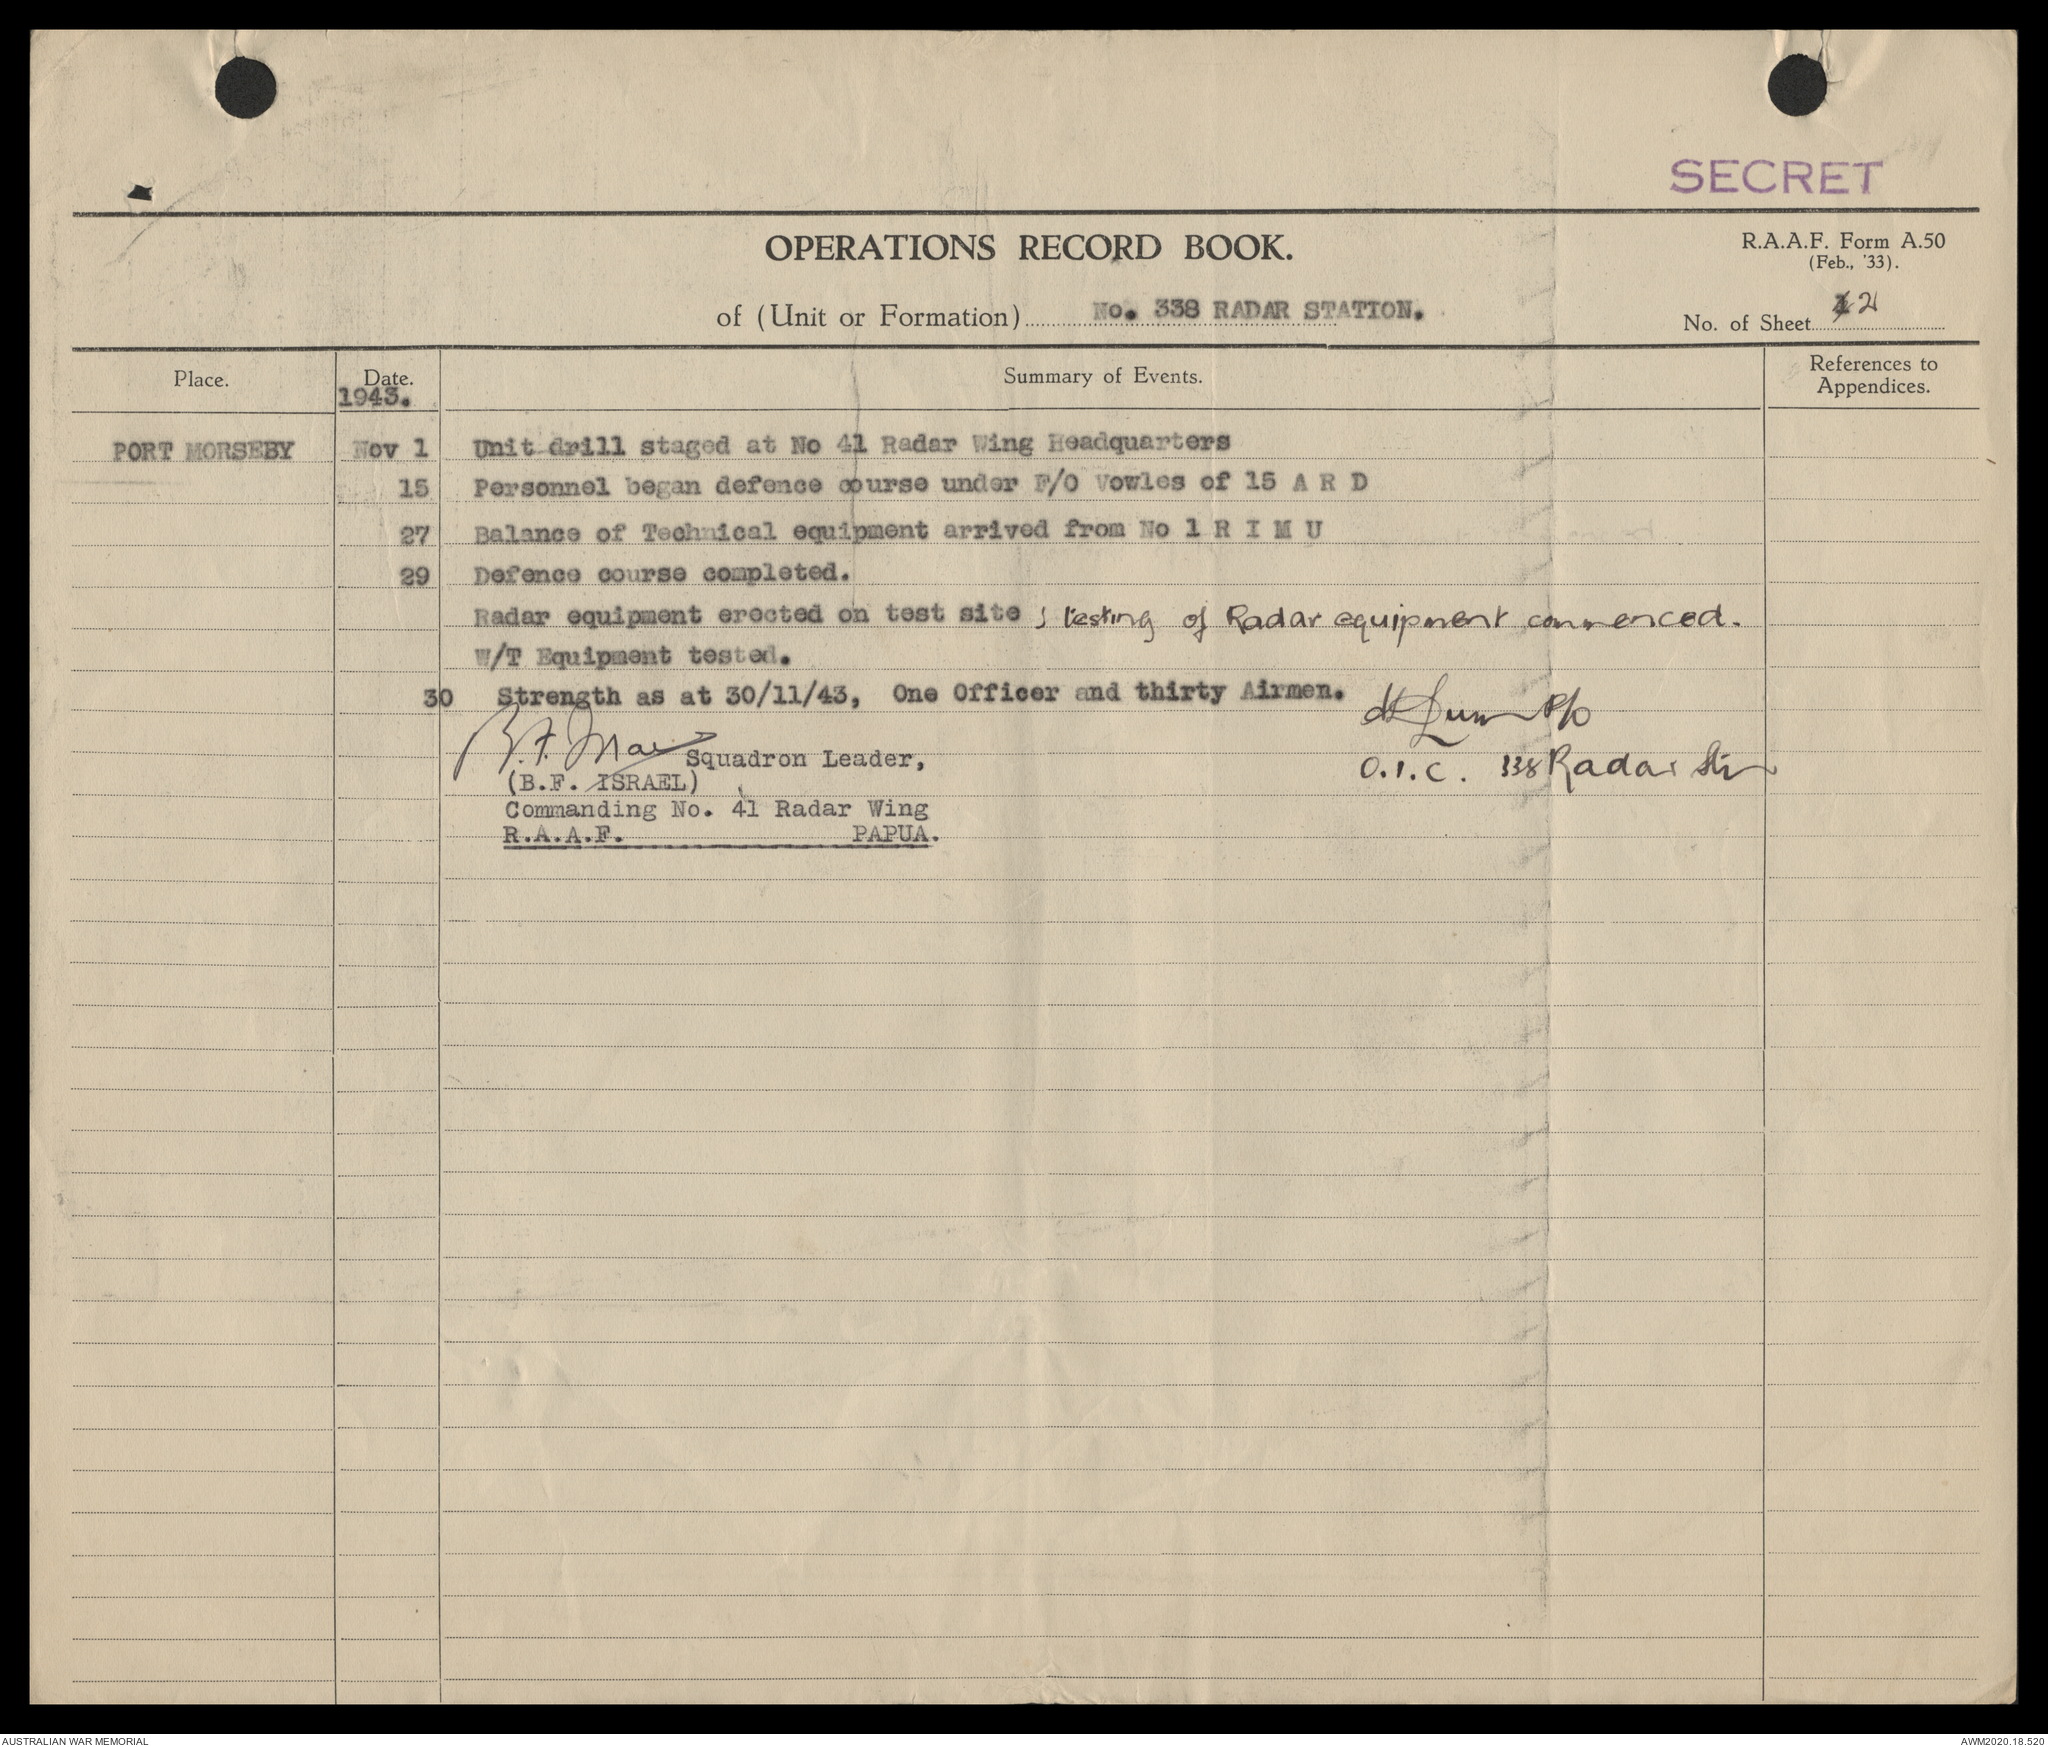 SECRET
OPERATIONS RECORD BOOK.
R.A.A.F. Form A.50
(Feb., '33).
of (Unit or Formation) No. 338 RADAR STATION.
No. of Sheet 2
Place.
Date.
Summary of Events.
References to
Appendices.
1943.
PORT MORSEBY Nov 1 Unit drill staged at No 41 Radar Wing Headquarters
15 Personnel began defence course under F/O Vowles of 15 A R D
27 Balance of Technical equipment arrived from No 1 R I M U
29 Defence course completed.
Radar equipment erected on test site ; testing of Radar equipment commenced.
W/T Equipment tested.
30 Strength as at 30/11/43, One Officer and thirty Airmen.
P/O
O.I.C. 338 Radar Stn
Squadron Leader,
(B.F. ISRAEL)
Commanding No. 41 Radar Wing
R.A.A.F. PAPUA.
AUSTRALIAN WAR MEMORIAL
AWM2020.18.520